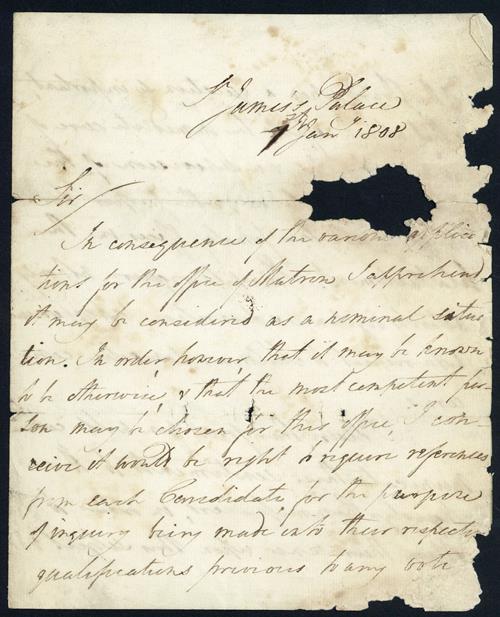 St James's Palace
7th Jany 1808
Sir
In consequence of the various applica
tions for the office of Matron I apprehend
it may be considered as a nominal situa
tion. In order, however, that it may be known
to be otherwise, & that the most competent per
son may be chosen for this office, I con-
ceive it would be right to require references
from each Candidate, for the purpose
of inquiry being made into their respective
qualifications previous to any vote